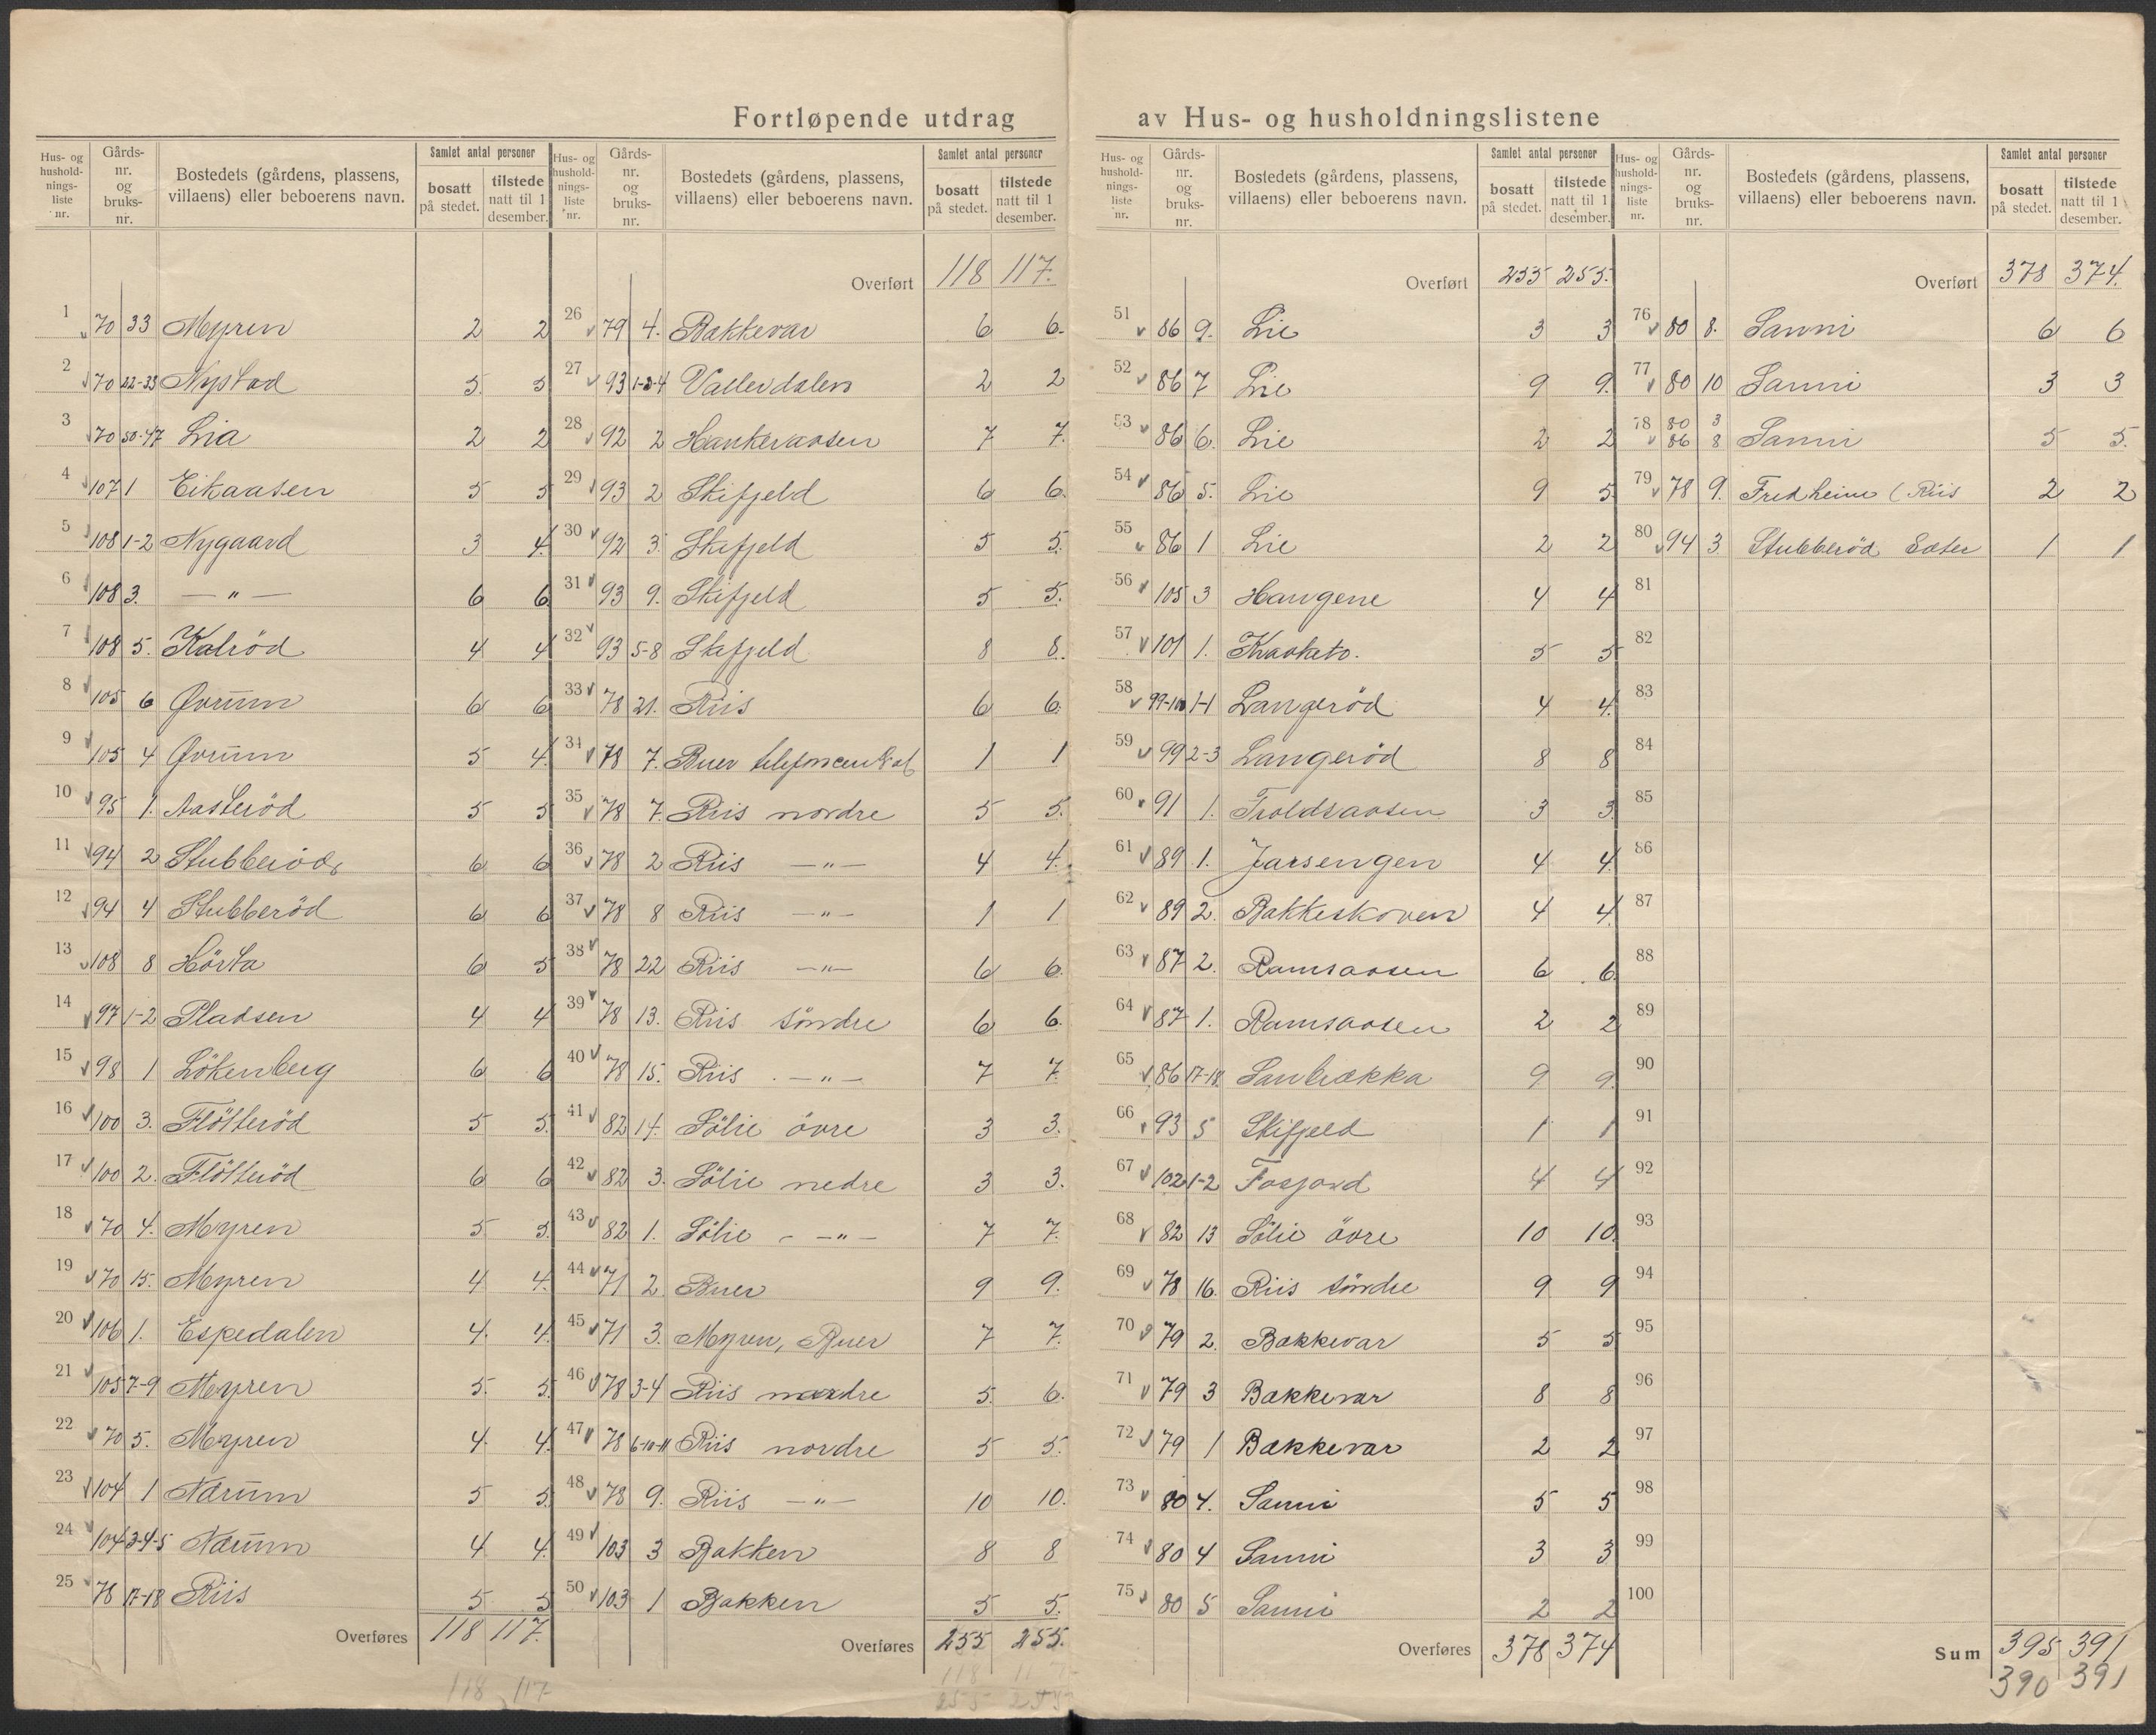 Fortløpende utdrag av Hus- og husholdningslistene
Hus- og hushold-nings-liste nr. | Gårds-nr. og bruks-nr. | Bostedets (gårdens, plassens, villaens) eller beboerens navn. | Samlet antal personer: bosatt på stedet. | tilstede natt til 1 desember.
1 70 33 Myren 2 2
2 70 22-33 Nystad 5 5
3 70 50-47 Lia 2 2
4 107 1 Eikaasen 5 5
5 108 1-2 Nygaard 3 4
6 108 3. — „ — 6 6
7 108 5. Kalröd 4 4
8 105 6 Ørum 6 6
9 105 4 Ørum 5 4
10 95 1. Aasteröd 5 5
11 94 2 Stubberöd 6 6
12 94 4 Stubberöd 6 6
13 108 8 Hörta 6 5
14 97 1-2 Pladsen 4 4
15 98 1 Lökenberg 6 6
16 100 3. Flötteröd 5 5.
17 100 2. Flötteröd 6 6
18 70 4. Myren 5 5.
19 70 15. Myren 4 4.
20 106 1. Espedalen 4 4.
21 105 7-9 Myren 5. 5.
22 70 5. Myren 4 4.
23 104 1 Nærum 5 5.
24 104 3-4-5 Nærum 4 4.
25 78 17-18 Riis 5 5
Overføres 118 117.
118 117
Hus- og hushold-nings-liste nr. | Gårds-nr. og bruks-nr. | Bostedets (gårdens, plassens, villaens) eller beboerens navn. | Samlet antal personer: bosatt på stedet. | tilstede natt til 1 desember.
Overført 118 117.
26 79 4. Bakkevar 6 6.
27 93 1-3-4 Vallerdalen 2 2
28 92 2 Haukeraasen 7 7.
29 93 2 Skifjeld 6 6.
30 92 3. Skifjeld 5 5.
31 93 9. Skifjeld 5 5.
32 93 5-8 Skifjeld 8 8.
33 78 21. Riis 6 6.
34 78 7. Buer telefoncentral 1 1
35 78 7. Riis nordre 5 5.
36 78 2 Riis — „ — 4 4.
37 78 8 Riis — „ — 1 1
38 78 22 Riis — „ — 6 6.
39 78 13. Riis söndre 6 6.
40 78 15. Riis . — „ — 7 7.
41 82 14. Sölie övre 3 3.
42 82 3. Sölie nedre 3 3.
43 82 1. Sölie - — „ — 7 7.
44 71 2 Buer 9 9.
45 71 3. Myren, Buer 7 7.
46 78 3-4 Riis nordre 5. 6.
47 78 6-10-11 Riis nordre 5 5.
48 78 9. Riis — „ — 10 10.
49 103 3 Bakken 8 8
50 103 1 Bakken 5 5.
Overføres 255 255.
118 117
255 255
Hus- og hushold-nings-liste nr. | Gårds-nr. og bruks-nr. | Bostedets (gårdens, plassens, villaens) eller beboerens navn. | Samlet antal personer: bosatt på stedet. | tilstede natt til 1 desember.
Overført 255 255.
51 86 9. Lie 3 3
52 86 7 Lie 9 9.
53 86 6. Lie 2 2
54 86 5. Lie 9 5
55 86 1 Lie 2 2
56 105 3 Haugene 4 4
57 101 1. Kraaketo. 5 5
58 99-100 1-1 Langeröd 4 4.
59 99 2-3 Langeröd 8 8
60 91 1. Troldsaasen 3 3.
61 89 1. Jarsengen 4 4.
62 89 2. Bakkeskoven 4 4.
63 87 2. Ramsaasen 6 6.
64 87 1. Ramsaasen 2 2
65 86 17-18 Sanbrækka 9 9.
66 93 5 Skifjeld 1 1
67 102 1-2 4 4
68 82 13 Sölie övre 10 10.
69 78 16. Riis söndre 9 9
70 79 2. Bakkevar 5 5
71 79 3 Bakkevar 8 8
72 79 1 Bakkevar 2 2
73 80 4. Sanni 5 5
74 80 4 Sanni 3 3
75 80 5 Sanni 2 2
Overføres 378 374
Hus- og hushold-nings-liste nr. | Gårds-nr. og bruks-nr. | Bostedets (gårdens, plassens, villaens) eller beboerens navn. | Samlet antal personer: bosatt på stedet. | tilstede natt til 1 desember.
Overført 378 374.
76 80 8. Sanni 6 6
77 80 10 Sanni 3 3
78 80 3 86 8 Sanni 5 5.
79 78 9. Fredheim (Riis 2 2
80 94 3 Stubberöd Sæter 1 1
81
82
83
84
85
86
87
88
89
90
91
92
93
94
95
96
97
98
99
100
Sum 395 391
390 391